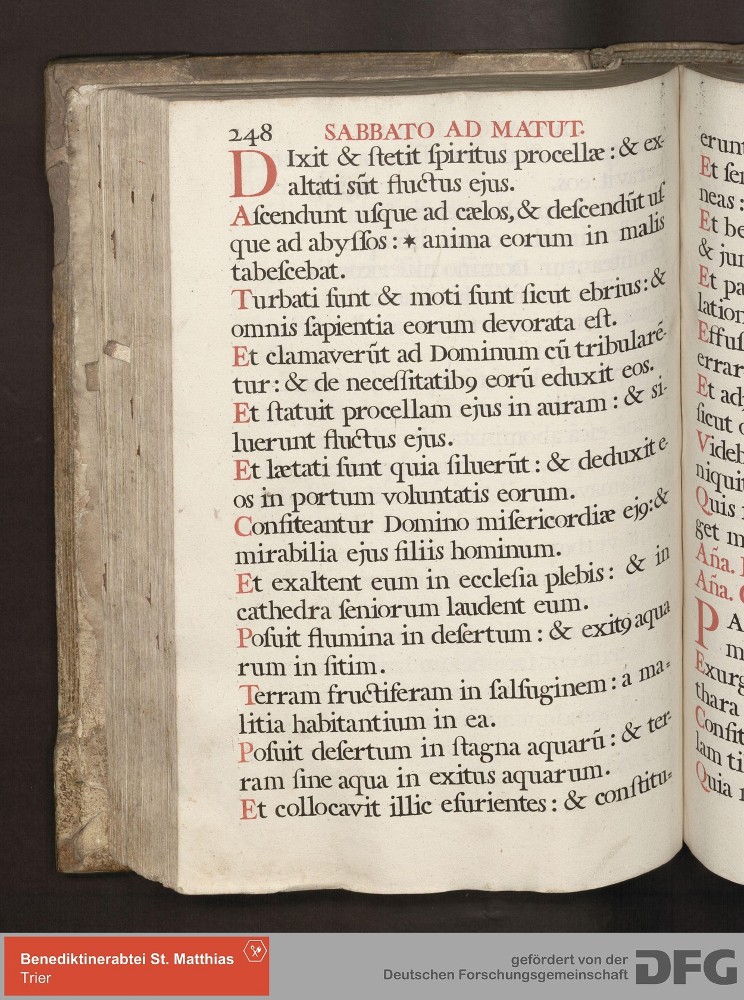 248 SABBATO AD MATUT.
DIxit & ſtetit ſpiritus procellæ : & ex-
altati sūt fluctus ejus.
Aſcendunt uſque ad cælos, & deſcendūt uſ-
que ad abyſſos : ✶ anima eorum in malis
tabeſcebat.
Turbati ſunt & moti ſunt ſicut ebrius : &
omnis ſapientia eorum devorata eſt.
Et clamaverūt ad Dominum cū tribularē-
tur : & de neceſſitatibꝯ eorū eduxit eos.
Et ſtatuit procellam ejus in auram : & ſi-
luerunt fluctus ejus.
Et lætati ſunt quia ſiluerūt : & deduxit e-
os in portum voluntatis eorum.
Confiteantur Domino miſericordiæ ejꝯ : &
mirabilia ejus filiis hominum.
Et exaltent eum in eccleſia plebis : & in
cathedra ſeniorum laudent eum.
Poſuit flumina in deſertum : & exitꝯ aqua
rum in ſitim.
Terram fructiferam in ſalſuginem : á ma-
litia habitantium in ea.
Poſuit deſertum in ſtagna aquarū : & ter-
ram ſine aqua in exitus aquarum.
Et collocavit illic eſurientes : & conſtitu-
erunt
Et ſer
neas :
Et be
& jun
Et pa
lation
Effuſ
errar
Et ad
ſicut
Videb
niquit
Quis
get m
Aña.
Aña.
PA
m
Exurg
thara
Confit
lam ti
Quia
Benediktinerabtei St. Matthias
Trier
gefördert von der
Deutschen Forschungsgemeinschaft
DFG